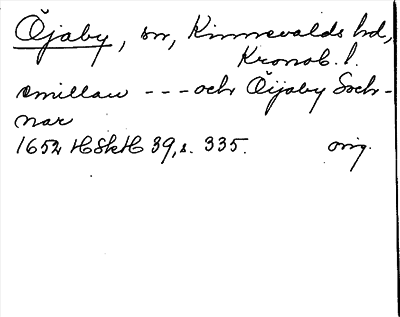 Öjaby, sn, Kinnevalds hd,
Kronob. l.
emillan --- och Öijaby Soch-
nar
1652 HSkH 39, s. 335. orig.